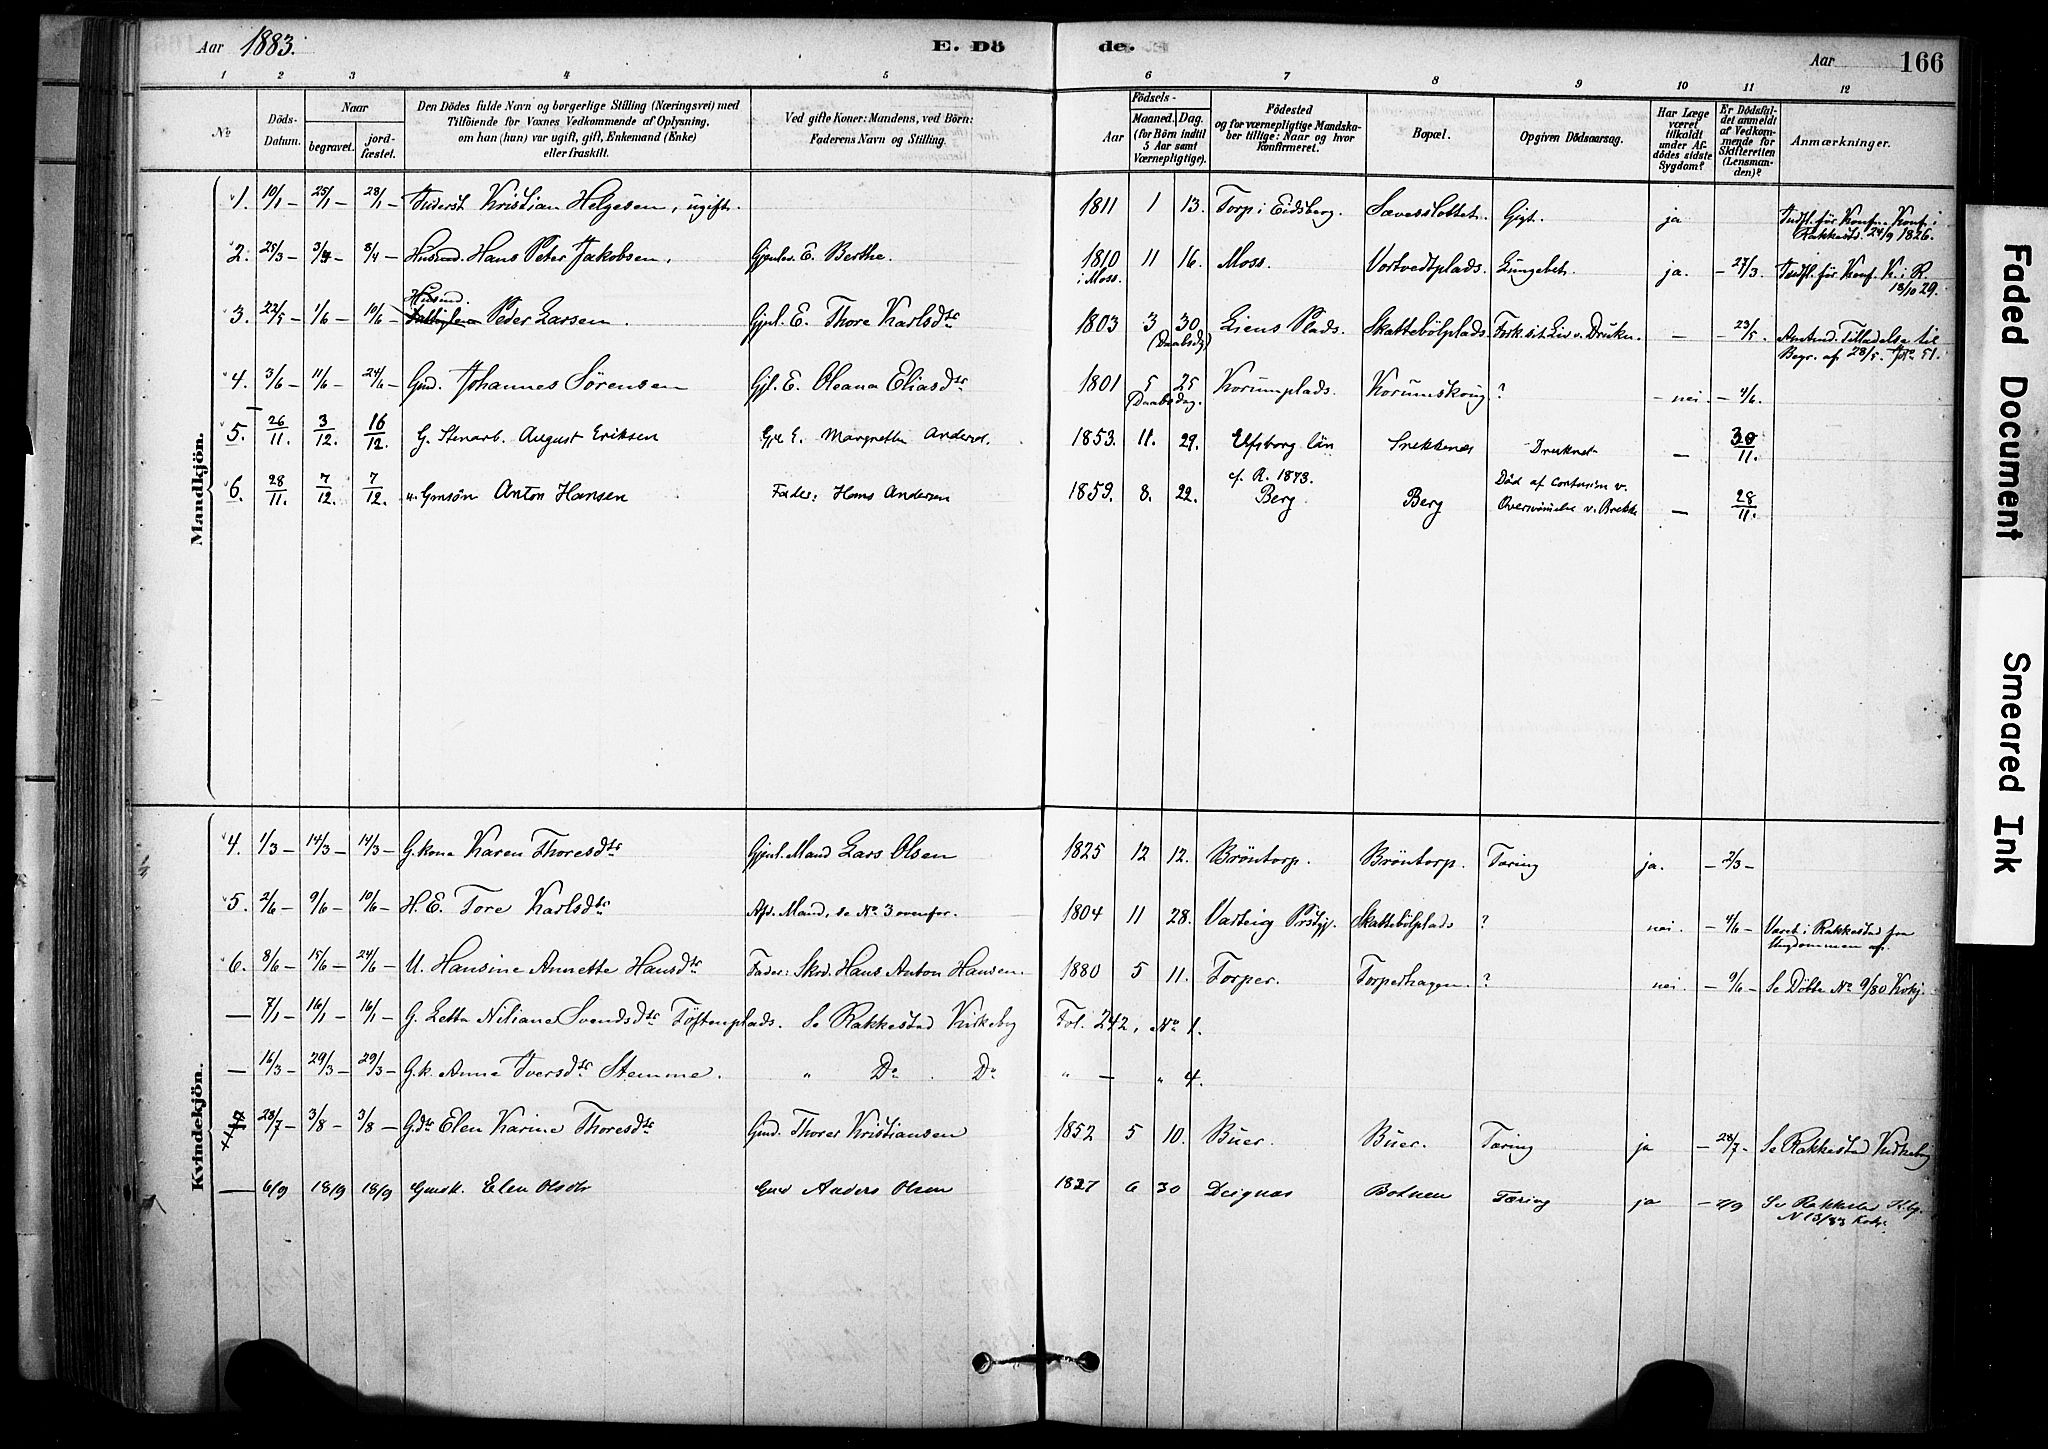 Aar 1883. E. Dö de. Aar 166
1 2 3 4 5 6 7 8 9 10 11 12
No
Döds-Datum.
Naar
begravet.
jord-fæstet.
Den Dödes fulde Navn og borgerlige Stilling (Næringsvei) med
Tilföiende for Voxnes Vedkommende af Oplysning,
om han (hun) var ugift, gift, Enkemand (Enke)
eller fraskilt.
Ved gifte Koner: Mandens, ved Börn:
Faderens Navn og Stilling.
Födsels-
Aar
Maaned. Dag.
(for Börn indtil
5 Aar samt
Værnepligtige).
Födested
og for værnepligtige Mandska-
ber tillige: Naar og hvor
Konfirmeret.
Bopæl.
Opgiven Dödsaarsag.
Har Læge
været
tilkaldt
under Af-
dödes sidste
Sygdom?
Er Dödsfal-
det anmeldt
af Vedkom-
mende for
Skifteretten
(Lensman-
den)?
Anmærkninger.
Mandkjön.
1. 10/1 – 25/1 – 28/1 – Kristian Helgesen, ugift. 1811 1 13. Torp i Eidsberg. Gigt. ja
Rakkestad 24/9 1826.
2. 25/3 – 3/4 – 8/4 – Husmd. Hans Peter Jakobsen. Gjenlev. E. Berthe. 1810 11 16. Moss. Vortvedtplads. Lungebet. ja. – 27/3. Indfl. för Konf. K. i R.
i Moss. 13/10 29.
Husmd.
3. 22/5 – 1/6 – 10/6 – Peder Larsen. Gjenl. E. Thore Karlsdtr 1803 3 30 Liens Plads. Skattebölplads. Fork. sit Liv v. Drukn. – – 23/5. Amtmd. Tilladelse til
(Daabsdg) Begr. af 28/5. No 51.
4. 3/6 – 11/6 – 24/6 – Gmd. Johannes Sörensen Gjl. E. Oleana Eliasdtr 1801 5 25 Korumplads. Korumskoug ? – nei. – 4/6.
(Daabsdag.
5. 26/11. 3/12. 16/12 G. Stenarb. August Eriksen Gjl E. Margrethe Andersd. 1853. 11. 29. Elfsborg län Snekkenes Druknet – 30/11.
cf. R. 1873.
6. 28/11. 7/12. 7/12. u. Gmsön Anton Hansen Fader: Hans Andersen 1859. 8. 22. Berg Berg Död af Contusion v.
Brekke – 28/11.
Kvindekjön.
4. 1/3 – 14/3 – 14/3 – G. kone Karen Thoresdtr Gjenl. Mand Lars Olsen 1825 12 12. Bröntorp. Bröntorp. Tæring ja. – 2/3 –
5. 2/6 – 9/6 – 10/6 – H. E. Tore Karlsdtr Afd. Mand, se No 3 ovenfor. 1804 11 28. Varteig Prstgj. Skattebölplads ? nei. – 4/6 – Været i Rakkestad fra
Ungdommen af.
6. 8/6 – 15/6 – 24/6 – U. Hansine Annette Hansdtr Fader: Skrd. Hans Anton Hansen. 1880 5 11. Torper. Torperhagen. ? nei – 9/6 – Se Döbte No 9/80 Kvkj.
– 7/1 – 16/1 – 16/1 – G. Letta Niliane Svendsdtr Töftenplads. Se Rakkestad Kirkebog Fol. 242, No 1.
– 16/3 – 29/3 – 29/3 – G. k. Anne Iversdtr Stemme. " Do . Do " – " 4.
28/7 – 3/8 – 3/8 – Gdtr Elen Karine Thoresdtr Gmd. Thorer Kristiansen 1852 5 10. Buer. Buer. Tæring ja – 28/7 – Se Rakkestad Kirkebog
– 6/9 18/9 18/9 Gmsk. Elen Olsdtr Gmd Anders Olsen 1827 6 30 Deignæs Botnen Tæring ja – 7/9 Se Rakkestad K.bg.
N 13/83
Faded Document
Smeared Ink